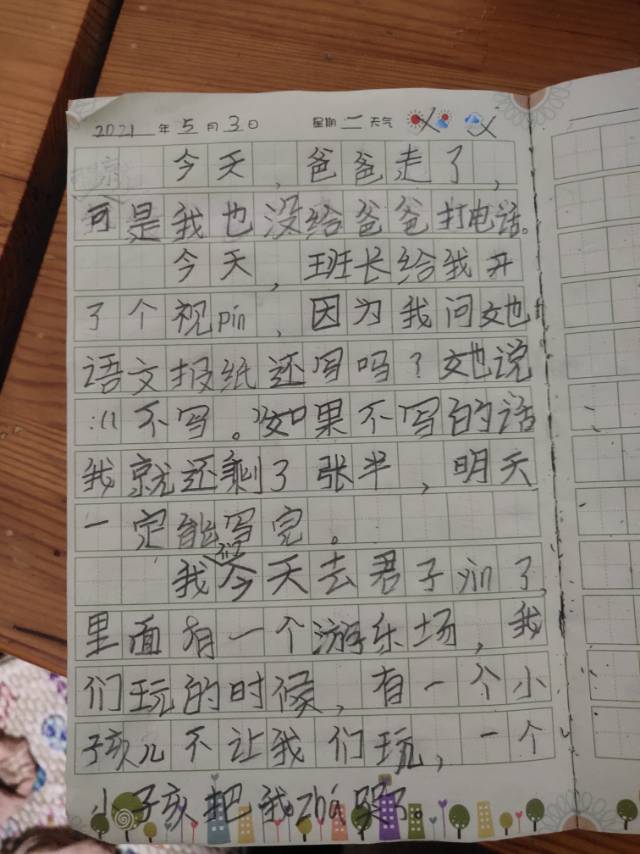 2021年5月3日 星期二 天气
今天,爸爸走了,
可是我也没给爸爸打电话。
今天,班长给我开
了个视pin,因为我问她
语文报纸还写吗?她说
:“不写。”如果不写的话
我就还剩了张半,明天
一定能写完。
我今天还去君子yin了,
里面有一个游乐场,我
们玩的时候,有一个小
孩儿不让我们玩,一个
小孩把我zhá哭了。